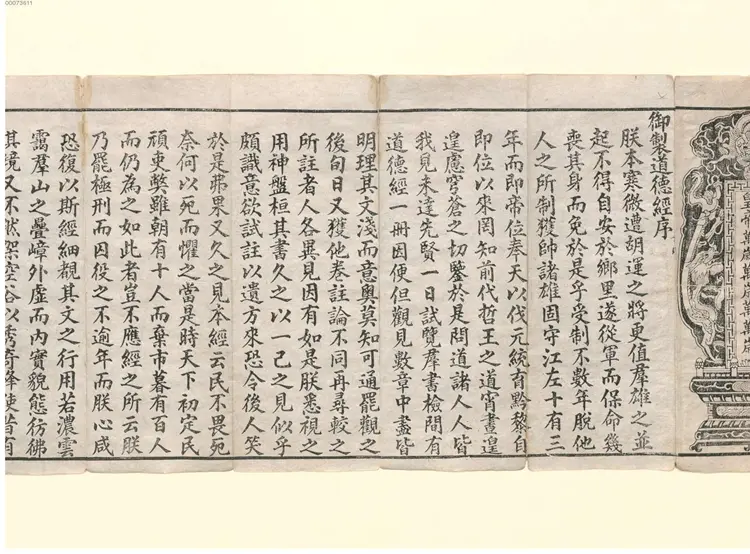 00073411
皇
萬歲
萬萬歲
御製道德經序
朕本寒微遭胡運之將更值羣雄之並
起不得自安於鄉里遂從軍而保命幾
喪其身而免於是乎受制不數年脫他
人之所制獲帥諸雄固守江左十有三
年而即帝位奉天以代元統育黔黎自
即位以來罔知前代哲王之道宵晝遑
遑慮穹蒼之切鑒於是問道諸人人皆
我見未達先賢一日試覽羣書檢間有
道德經一冊因便但觀見數章中盡皆
明理其文淺而意奧莫知可通罷觀之
後旬日又獲他卷註論不同再尋較之
所註者人各異見因有如是朕悉視之
用神盤桓其書久之以一己之見似乎
頗識意欲試註以遺方來恐今後人笑
於是弗果又久之見本經云民不畏死
奈何以死而懼之當是時天下初定民
頑吏弊雖朝有十人而棄市暮有百人
而仍為之如此者豈不應經之所云朕
乃罷極刑而囚役之不逾年而朕心咸
恐復以斯經細覩其文之行用若濃雲
靄羣山之疊嶂外虛而內實貌態彷彿
其境又不然架空谷以秀奇峰使昔有